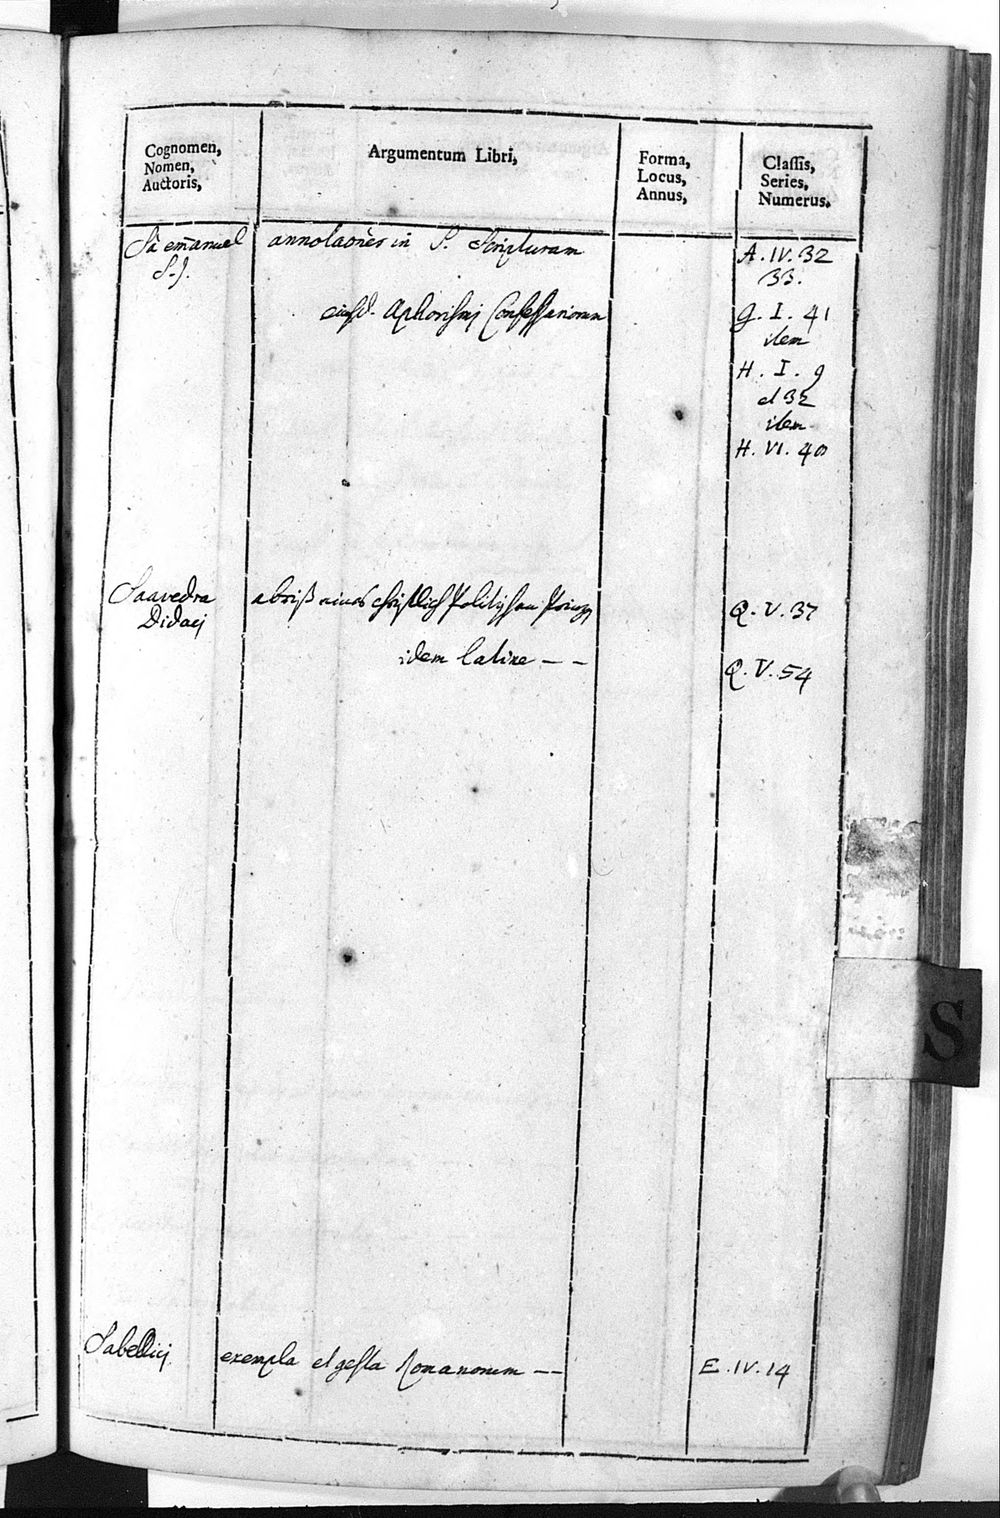 Cognomen,
Nomen,
Auctoris,
Argumentum Libri,
Forma,
Locus,
Annus,
Classis,
Series,
Numerus.
Sà emanuel annotaões in S. Scripturam A. IV. 32
S. J. 33.
eiusd. Aphorismj Confessariorum G. I. 41
item
H. I. 9
et 32
item
H. VI. 40
Saavedra abriß eines christlich Politischen Q. V. 37
Didacj
idem latine – – Q. V. 54
S
Sabellicj exempla et gesta Romanorum – – E. IV. 14